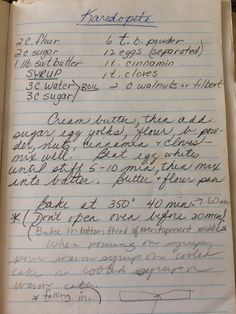 Karedopeta
2 c. flour 6 t. b. powder
2 c sugar 12 eggs (separated)
1 lb sweet butter 1 t. cinnamin
SYRUP 1 t. cloves
3 C water > BOIL 2 C walnuts or filbert
3 C sugar
Cream butter, then add
sugar, egg yolks, flour, b. pow-
der, nuts, cinnamin & cloves -
mix well. Beat egg whites
until stiff 5-10 min, then mix
into batter. Butter & flour pan
Bake at 350° 40 min. → 60 min
* (Don't open oven before 20 min!)
(Bake in bottom third of oven to prevent middle *
When pouring on syrup,
pour warm syrup on cooled
cake or cooled syrup on
warm cake.
* falling in.)